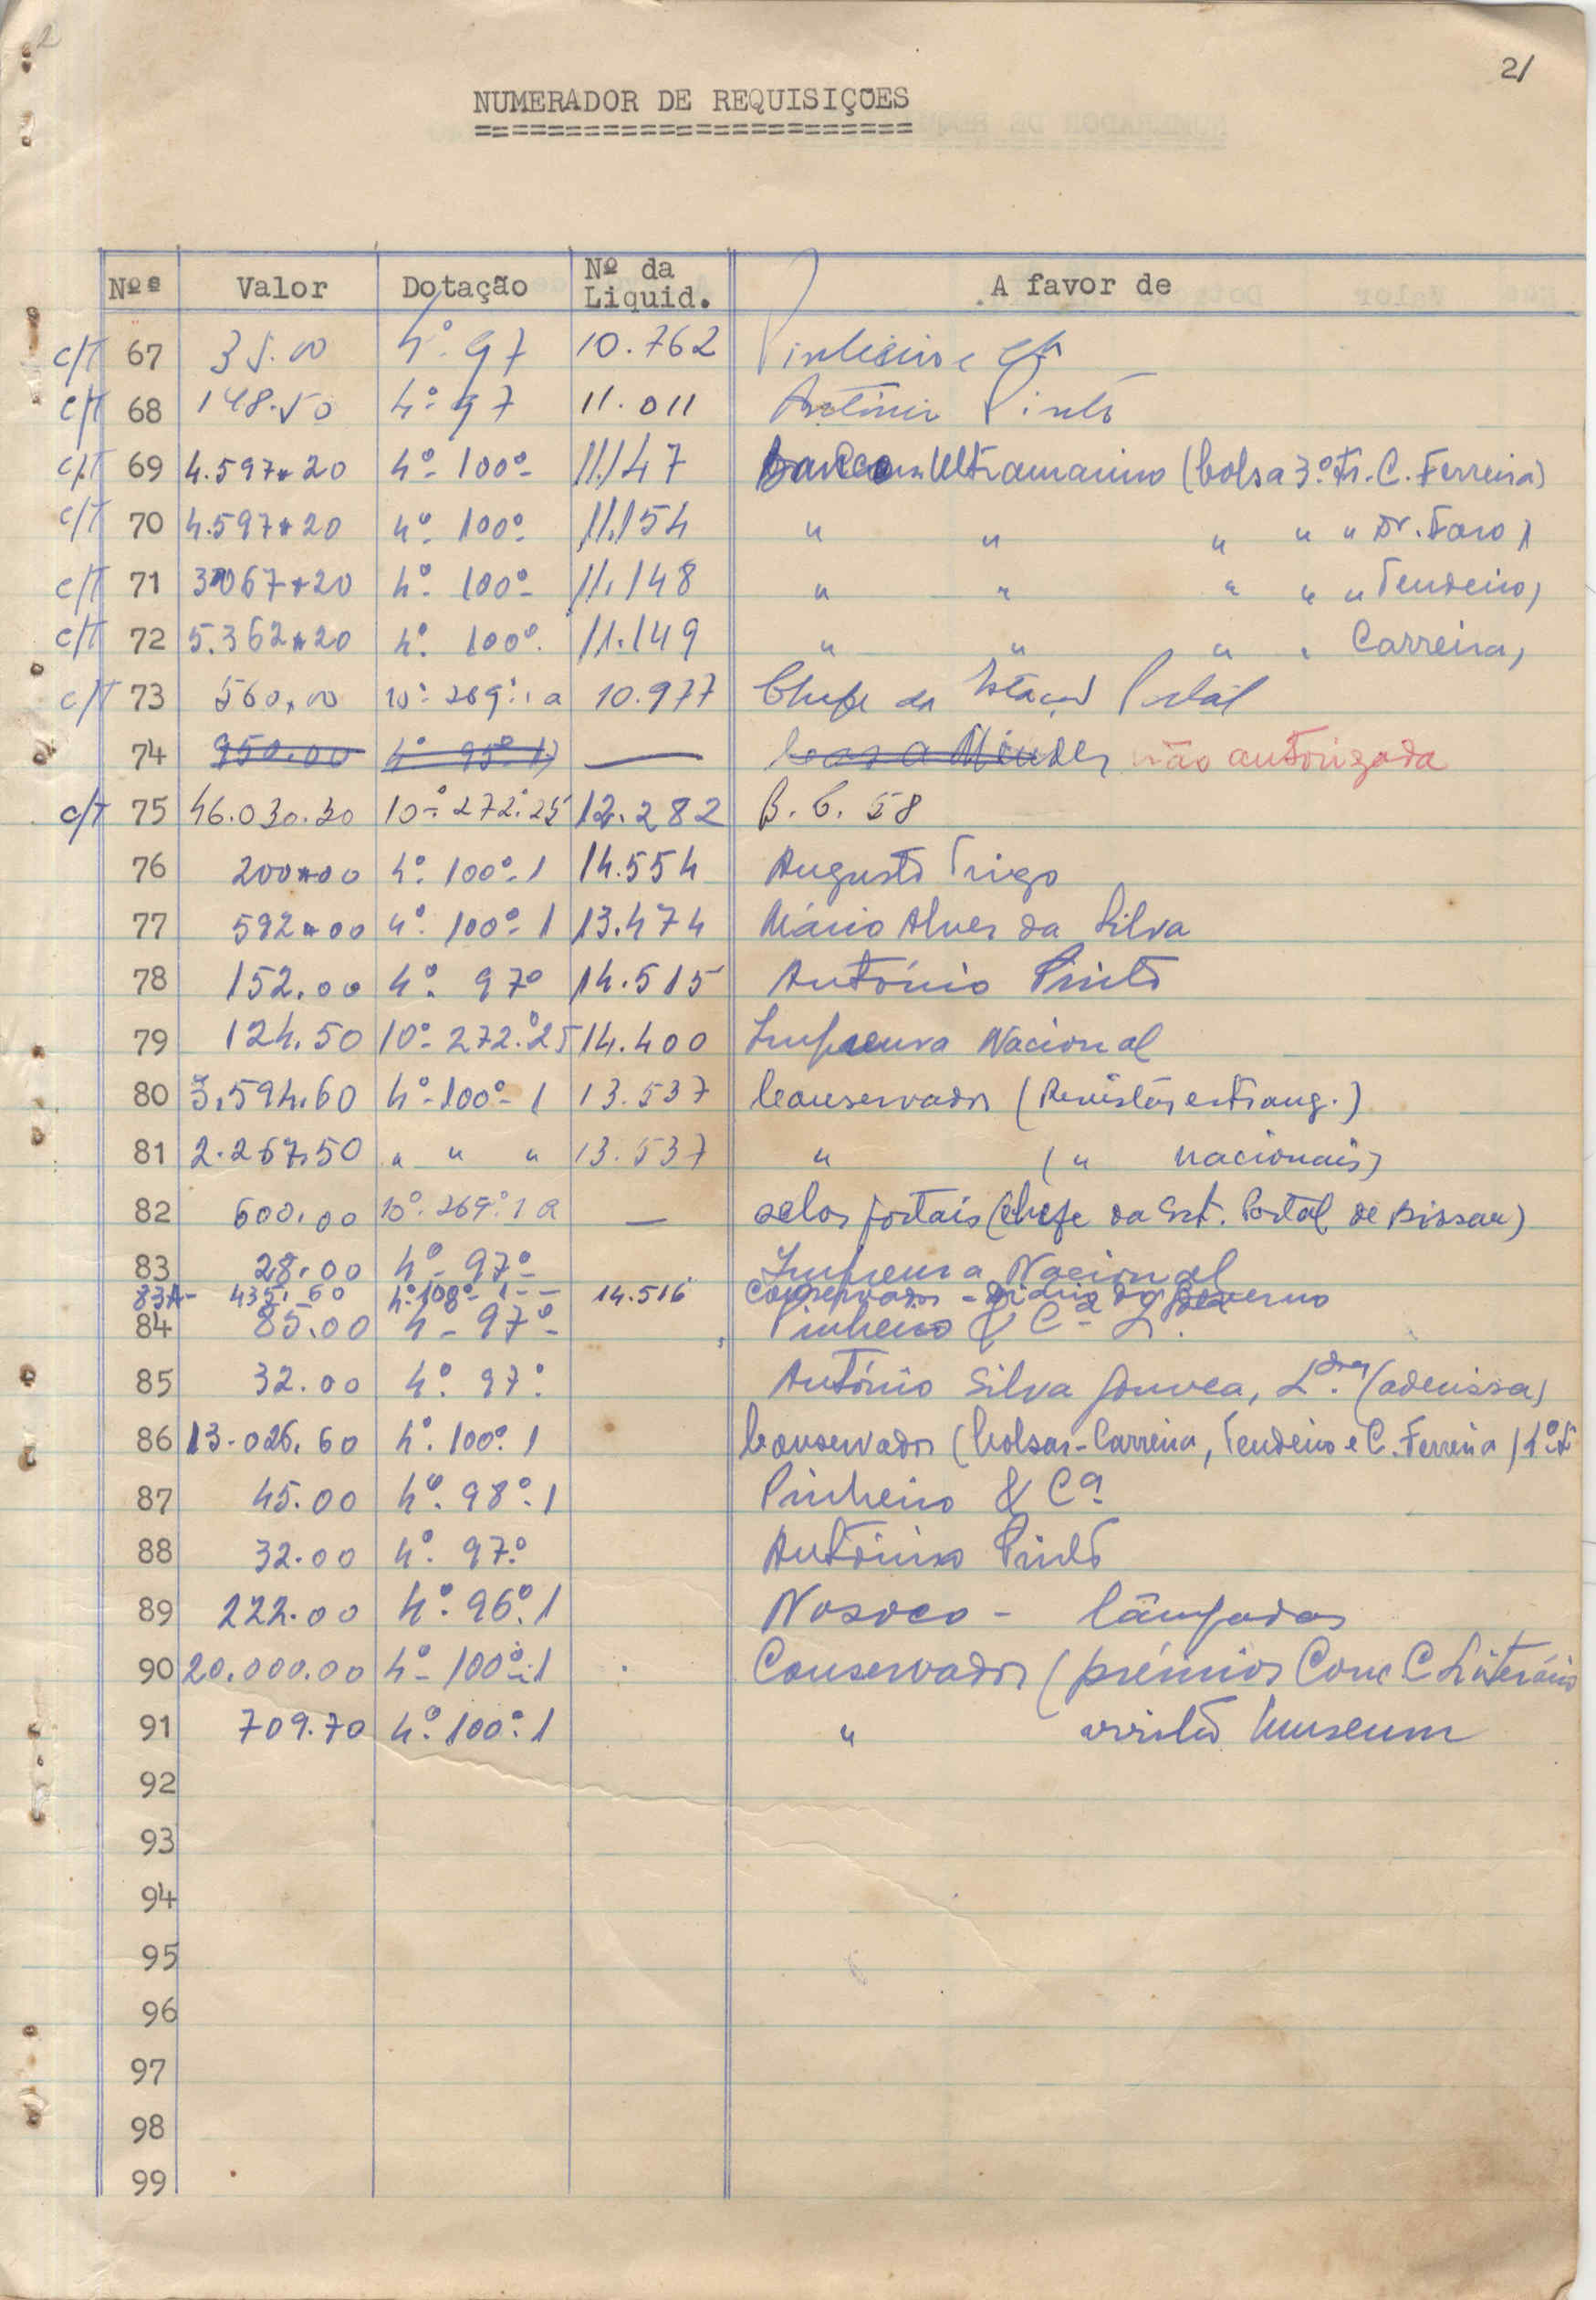 2
21
NUMERADOR DE REQUISIÇÕES
========================
Nºs Valor Dotação Nº da Liquid. A favor de
c/T 67 35.00 4º. 97 10.762 Pinheiro e Cª
c/T 68 148.50 4º. 97 11.011 António Pinto
c/T 69 4.597*20 4º- 100º- 11.147 Banco Ultramarino (bolsa 3º. Tr. C. Ferreira)
c/T 70 4.597*20 4º- 100º- 11.154 " " " " " Dr. Faro)
c/T 71 3067*20 4º- 100º- 11.148 " " " " " Tendeiro)
c/T 72 5.362*20 4º. 100º. 11.149 " " " " Carreira)
c/T 73 560,00 10º. 269º. 1 a 10.977 Chefe da Estação Postal
74 950.00 4º 95º 1) — Mendes não autorizada
c/T 75 46.030.30 10º. 272º. 25 12.282 B. C. 58
76 200*00 4º. 100º. 1 14.554 Augusto Trigo
77 592*00 4º. 100º. 1 13.474 Mário Alves da Silva
78 152.00 4º. 97º 14.515 António Pinto
79 124.50 10º- 272.º 25 14.400 Imprensa Nacional
80 3.594.60 4º-100º- 1 13.537 Conservador (Revistas estrang.)
81 2.267.50 " " " 13.537 " ( " nacionais)
82 600.00 10º. 269º. 1 a — selos postais (Chefe da Est. Postal de Bissau)
83 28.00 4º- 97º- Imprensa Nacional
83A- 435,60 4º.100º- 1-- 14.516 Conservador - Diário do Governo
84 85.00 4º- 97º- Pinheiro & Cª Lª.
85 32.00 4º. 97º. António Silva Gouvea, L.da
86 13.026.60 4º. 100º. 1 Conservador (bolsas-Carreira, Tendeiro e C. Ferreira) 1º T
87 45.00 4º. 98º. 1 Pinheiro & Cª.
88 32.00 4º. 97.º António Pinto
89 222.00 4º. 96º. 1 Nosoco - lâmpadas
90 20.000.00 4º- 100º. 1 Conservador (prémios Conc. Literário
91 709.70 4º. 100º. 1 " Museum
92
93
94
95
96
97
98
99